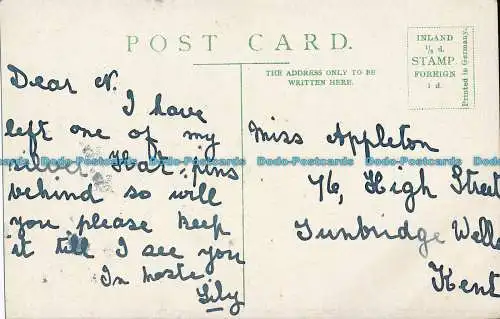 POST CARD.
INLAND
½ d.
STAMP
FOREIGN
1 d.
Printed in Germany.
THE ADDRESS ONLY TO BE
WRITTEN HERE.
Dear N.
I have
left one of my
silver Hat pins
behind so will
you please keep
it till I see you
In haste
Lily
Miss Appleton
76, High Street
Tunbridge Wells
Kent
Dodo-Postcards Dodo-Postcards Dodo-Postcards Dodo-Postcards